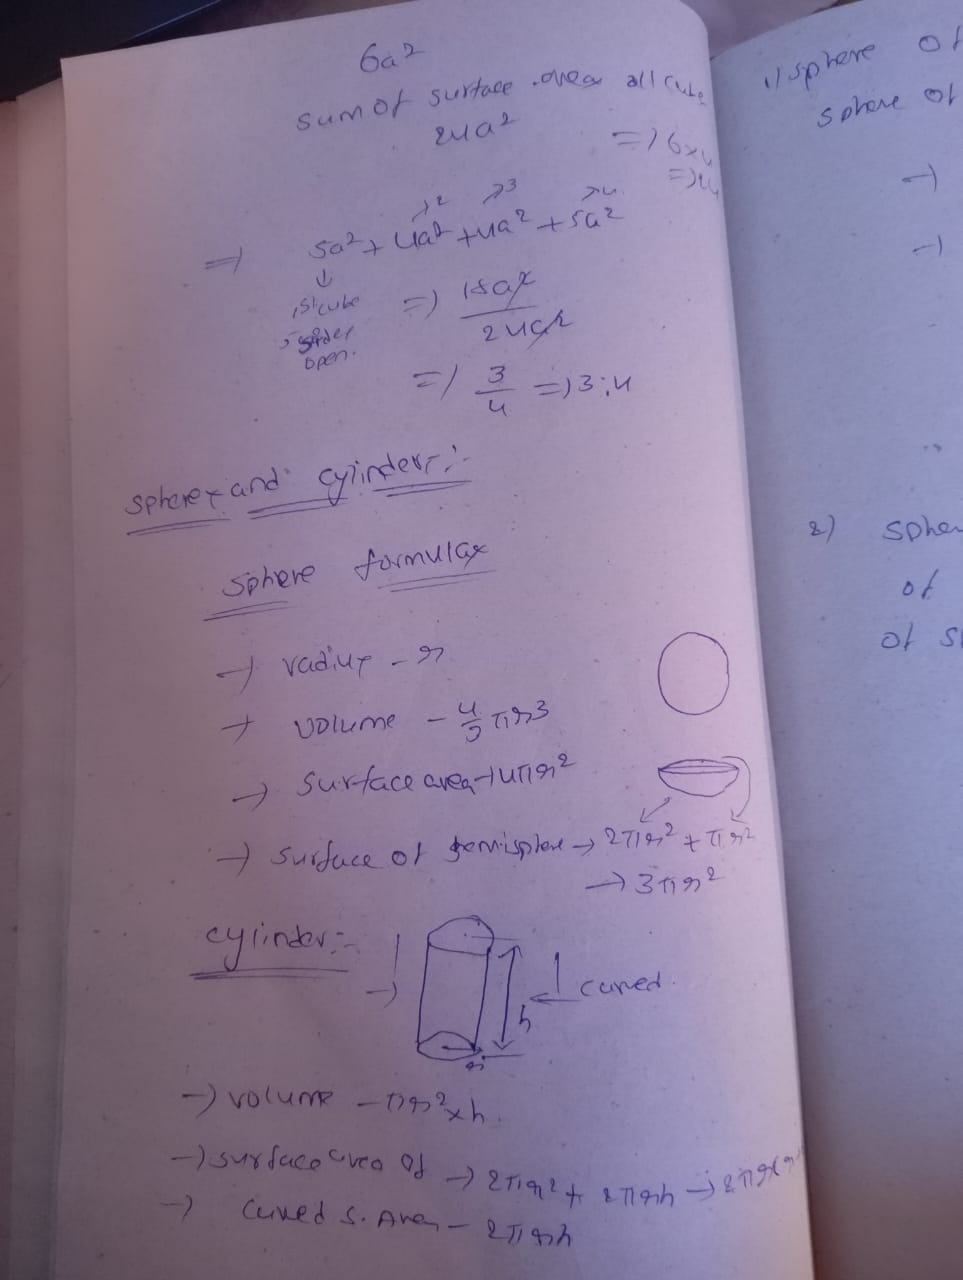 6a²
sum of surface area all cube
24a²
=> 6x4
=> 24
=> 5a² + 4a² + 4a² + 5a²
→2 →3 →4
↓
1st cube
5 sides
open.
=> 18a²/24a²
=> 3/4 => 3:4
spheres and cylinders :-
sphere formulas
→ radius - r
→ volume - 4/3 πr³
→ Surface area → 4πr²
→ surface of hemisphere → 2πr² + πr²
→ 3πr²
cylinder :-
curved.
h
r
→ volume - πr² x h.
→ surface area of → 2πr² + 2πrh → 2πr(r
→ curved s. Area - 2πrh
1) sphere of
sphere of
→
→
2) spher
of
of s